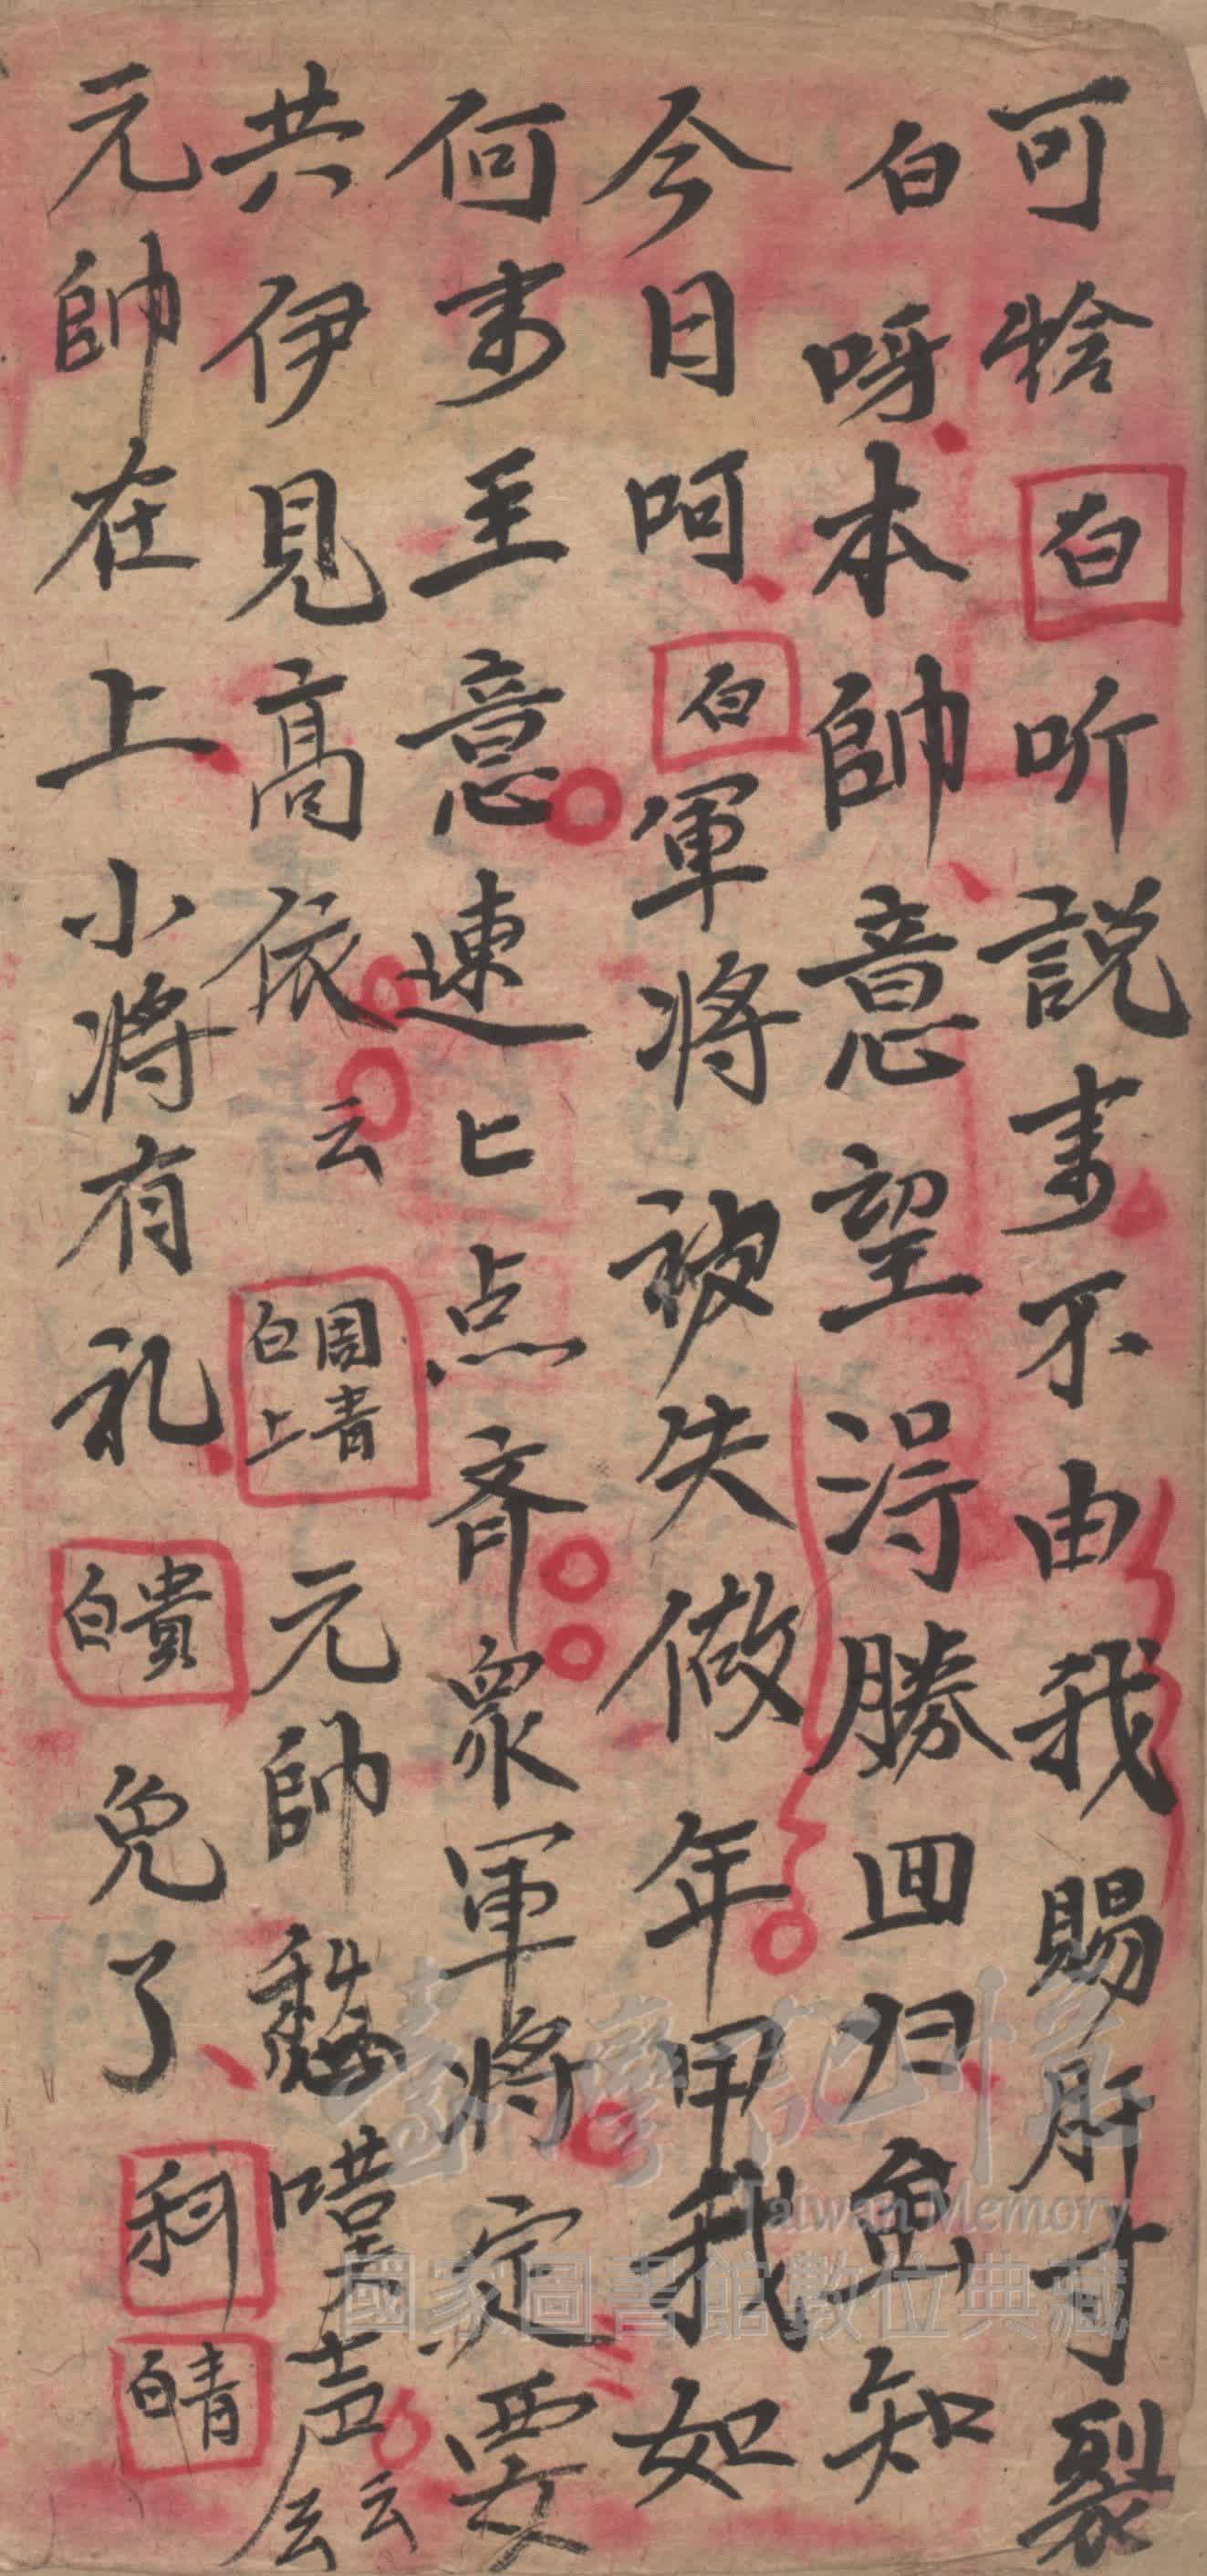 可恰白听説事不由我賜肝寸裂
白呀本帥意望淂勝回归知
今日呵白軍將被失做年甲我如
何事主意速匕点齊衆軍將定要
共伊見高依云周青白上元帥声云云
元帥在上小將有礼貴白免了科青白
臺灣記憶
Taiwan Memory
國家圖書館數位典藏